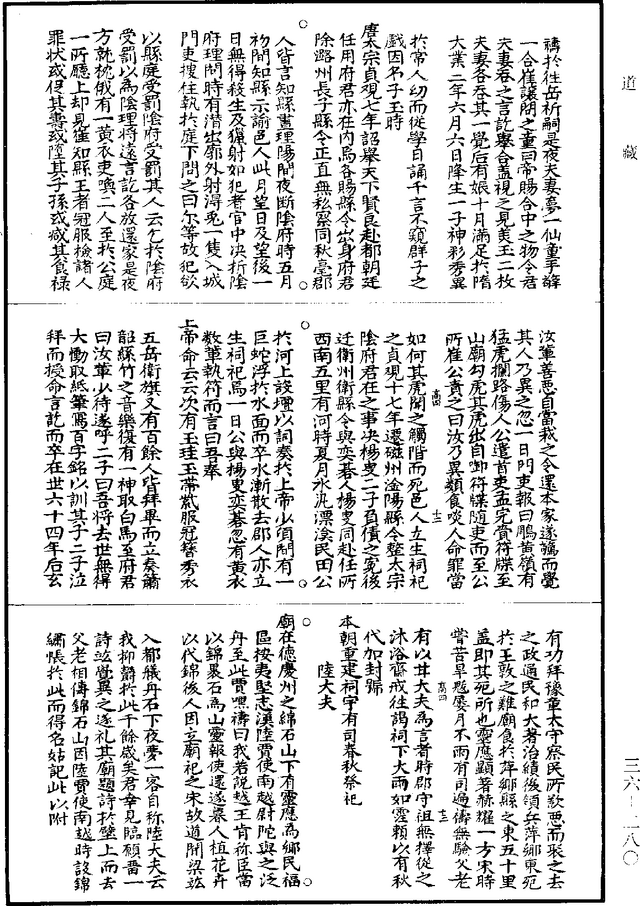 道藏
禱於北岳祈嗣是夜夫妻夢一仙童手擎
一合崔讓問之童曰帝賜合中之物令君
夫妻吞之言訖舉合盖視之見美玉二枚
夫妻各吞其一覺后有娠十月滿足於隋
大業二年六月六日降生一子神彩秀異
於常人幼而從學日誦千言不窺群子之
戲因名子玉時
唐太宗貞觀七年詔舉天下賢良赴都朝廷
任用府君亦在内焉各賜縣令出身府君
除潞州長子縣令正直無私察同秋毫郡
人皆言知縣晝理陽間夜斷陰府時五月
初間知縣示諭邑人此月望日及望後一
日無得殺生及獵射如犯者官中决折陰
府理問時有潛出廓外射得兎一隻入城
門吏搜住執於庭下問之曰尔等故犯欲
以縣庭受罰陰府受罰其人云乞於陰府
受罰以為陰理將遠言訖各放還家是夜
方就枕俄有一黄衣吏喚二人至於公庭
一所廳上却見崔知縣王者冠服檢諸人
罪状或促其壽或陸其子孫或减其食禄
汝輩善惡自當裁之令還本家遂驚而覺
其人乃異之忽一日門吏報曰鵰黄嶺有
猛虎攔路傷人公遣首吏孟完賫符牒至
山廟勾虎其虎出自啣符牒随吏而至公
所崔公責之曰汝乃異類食啖人命罪當
如何其虎聞之觸階而死邑人立生祠祀
之貞觀十七年遷磁州滏陽縣令整太宗
陰府君在之事决楊叟二子負債之寃後
迁衛州衛縣令與奕碁人楊叟同赴任所
西南五里有河時夏月水汎漂渰民田公
於河上設壇以詞奏於上帝少湏間有一
巨蛇浮於水面而卒水漸散去郡人亦立
生祠祀焉一日公與楊叟奕碁忽有黄衣
數輩執符而言曰吾奉
上帝命云云次有玉珪玉帶紫服冠簪秀衣
五岳衛旗又有百餘人皆拜畢而立奏簫
韶絲竹之音樂復有一神取白馬至府君
曰汝輩少待遂呼二子曰吾將去世無得
大慟取紙筆寫百字銘以訓其子二子泣
拜而授命言訖而卒在世六十四年后玄
有功拜豫章太守察民所歎惡而聚之去
之政通民和大著治績後領兵萍鄉東死
於王敦之難廟食於萍鄉縣之東五十里
盖即其死所也靈應顯著赫耀一方宋時
嘗苦旱愆屢月不雨有司遍禱無驗父老
有以甘大夫為言者時郡守祖無擇從之
沐浴齋戒往謁祠下大雨如霪賴以有秋
代加封號
本朝重建祠宇有司春秋祭祀
陸大夫
廟在德慶州之錦石山下有靈應為鄉民福
區按夷堅志漢陸賈使南越尉陀與之泛
舟至此賈嘿禱曰我若說越王肯称臣當
以錦裹石為山靈報使還遂募人植花卉
以代錦後人因立廟祀之宋故道開梁竑
入都艤舟石下夜夢一客自称陸大夫云
我抑鬱於此千餘歲矣君幸見臨願畱一
詩竑覺異之遂礼其廟題詩於壁上而去
父老相傳錦石山因陸賈使南越時設錦
繡悵於此而得名姑記此以附
高四 十二
高四 十三
三六—二八〇